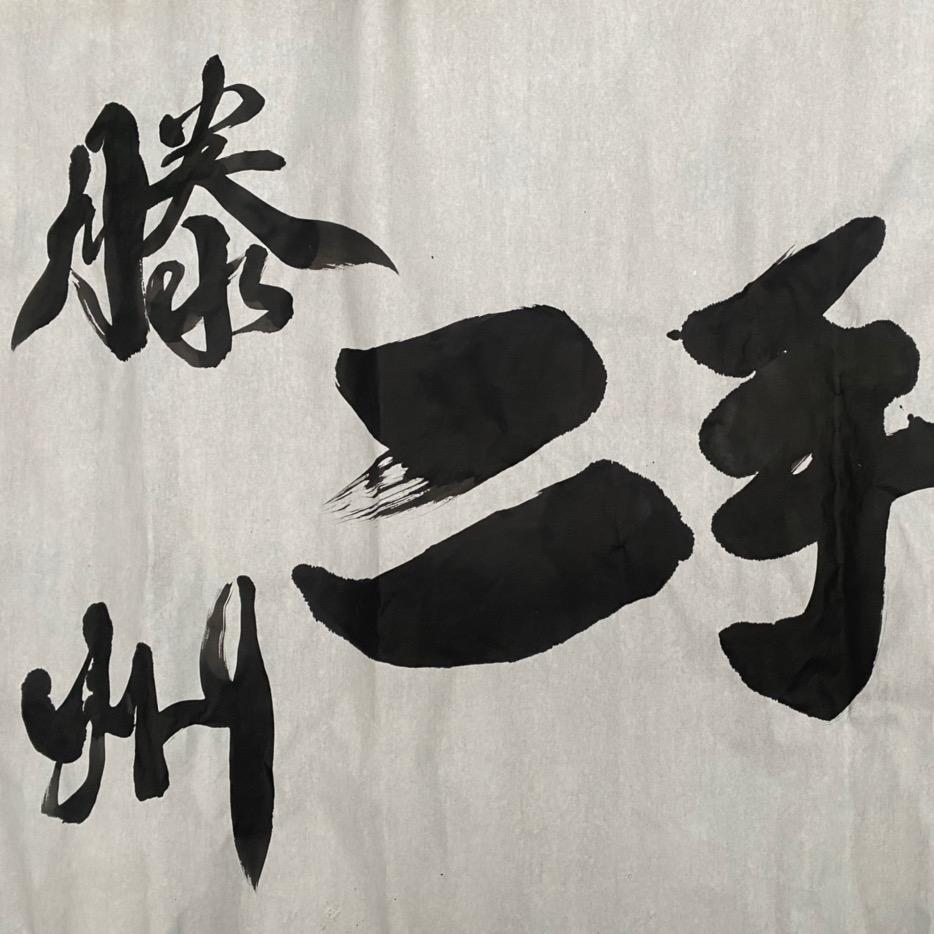 滕州
二手